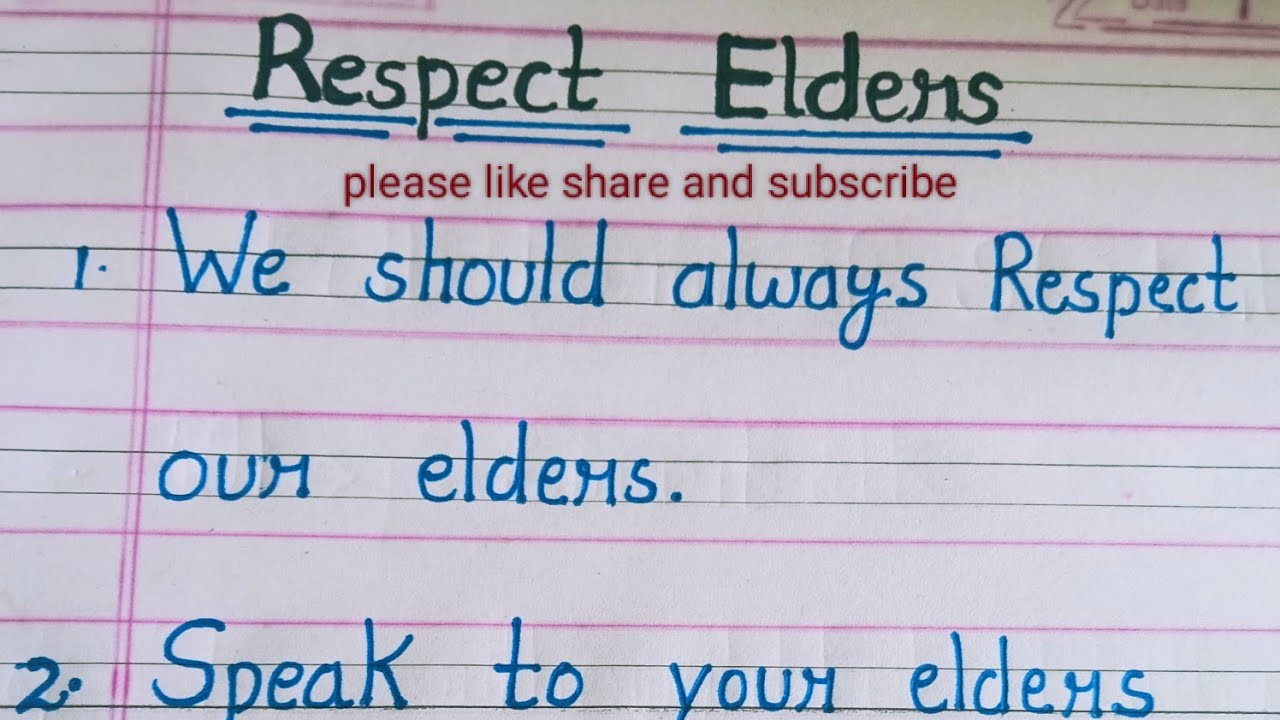 Respect Elders
please like share and subscribe
1. We should always Respect
our elders.
2. Speak to your elders